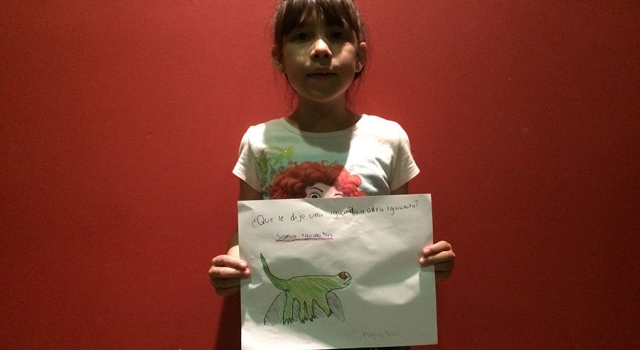 ¿Que le dijo una iguanita a otra iguanita?
Somos iguanitas